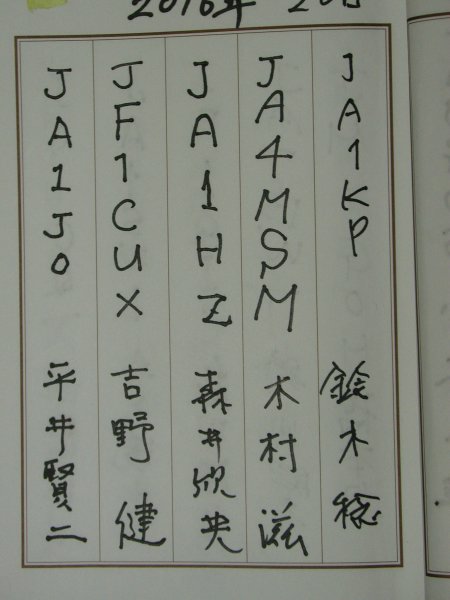 2016年 2月
JA1KP 鈴木 稔
JA4MSM 木村 滋
JA1HZ 森井欣央
JF1CUX 吉野 健
JA1JO 平井賢二